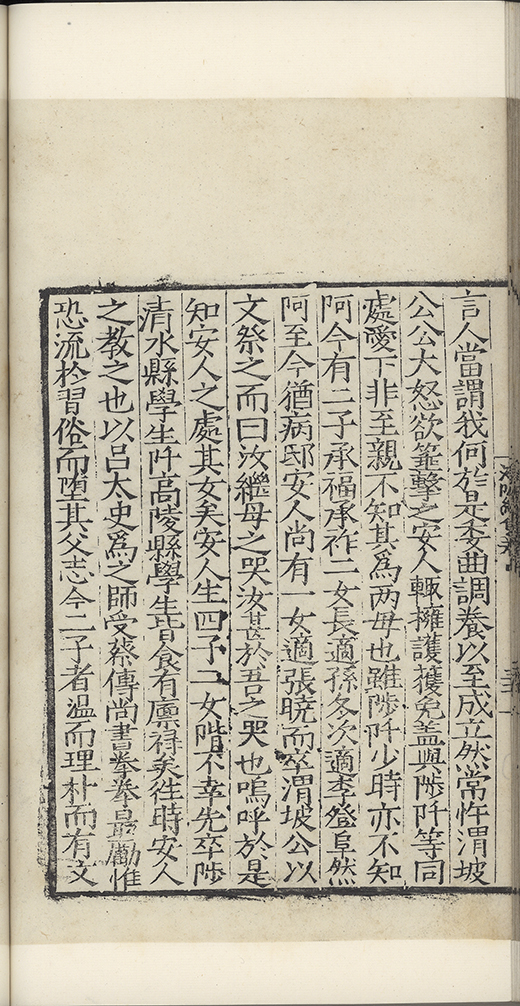 言人當謂我何於是委曲調養以至成立然常忤渭坡
公公大怒欲箠擊之安人輙擁護獲免盖與陟阡等同
處愛下非至親不知其為两母也雖陟阡少時亦不知
阿今有二子承福承祚二女長適孫冬次適李登阜然
阿至今猶病邸安人尚有一女適張曉而卒渭坡公以
文祭之而曰汝繼母之哭汝甚於吾之哭也嗚呼於是
知安人之處其女矣安人生四子二女階不幸先卒陟
清水縣學生阡高陵縣學生皆食有廩禄矣徃時安人
之教之也以吕太史為之師受蔡傳尚書拳拳最勵惟
恐流於習俗而墮其父志今二子者温而理朴而有文